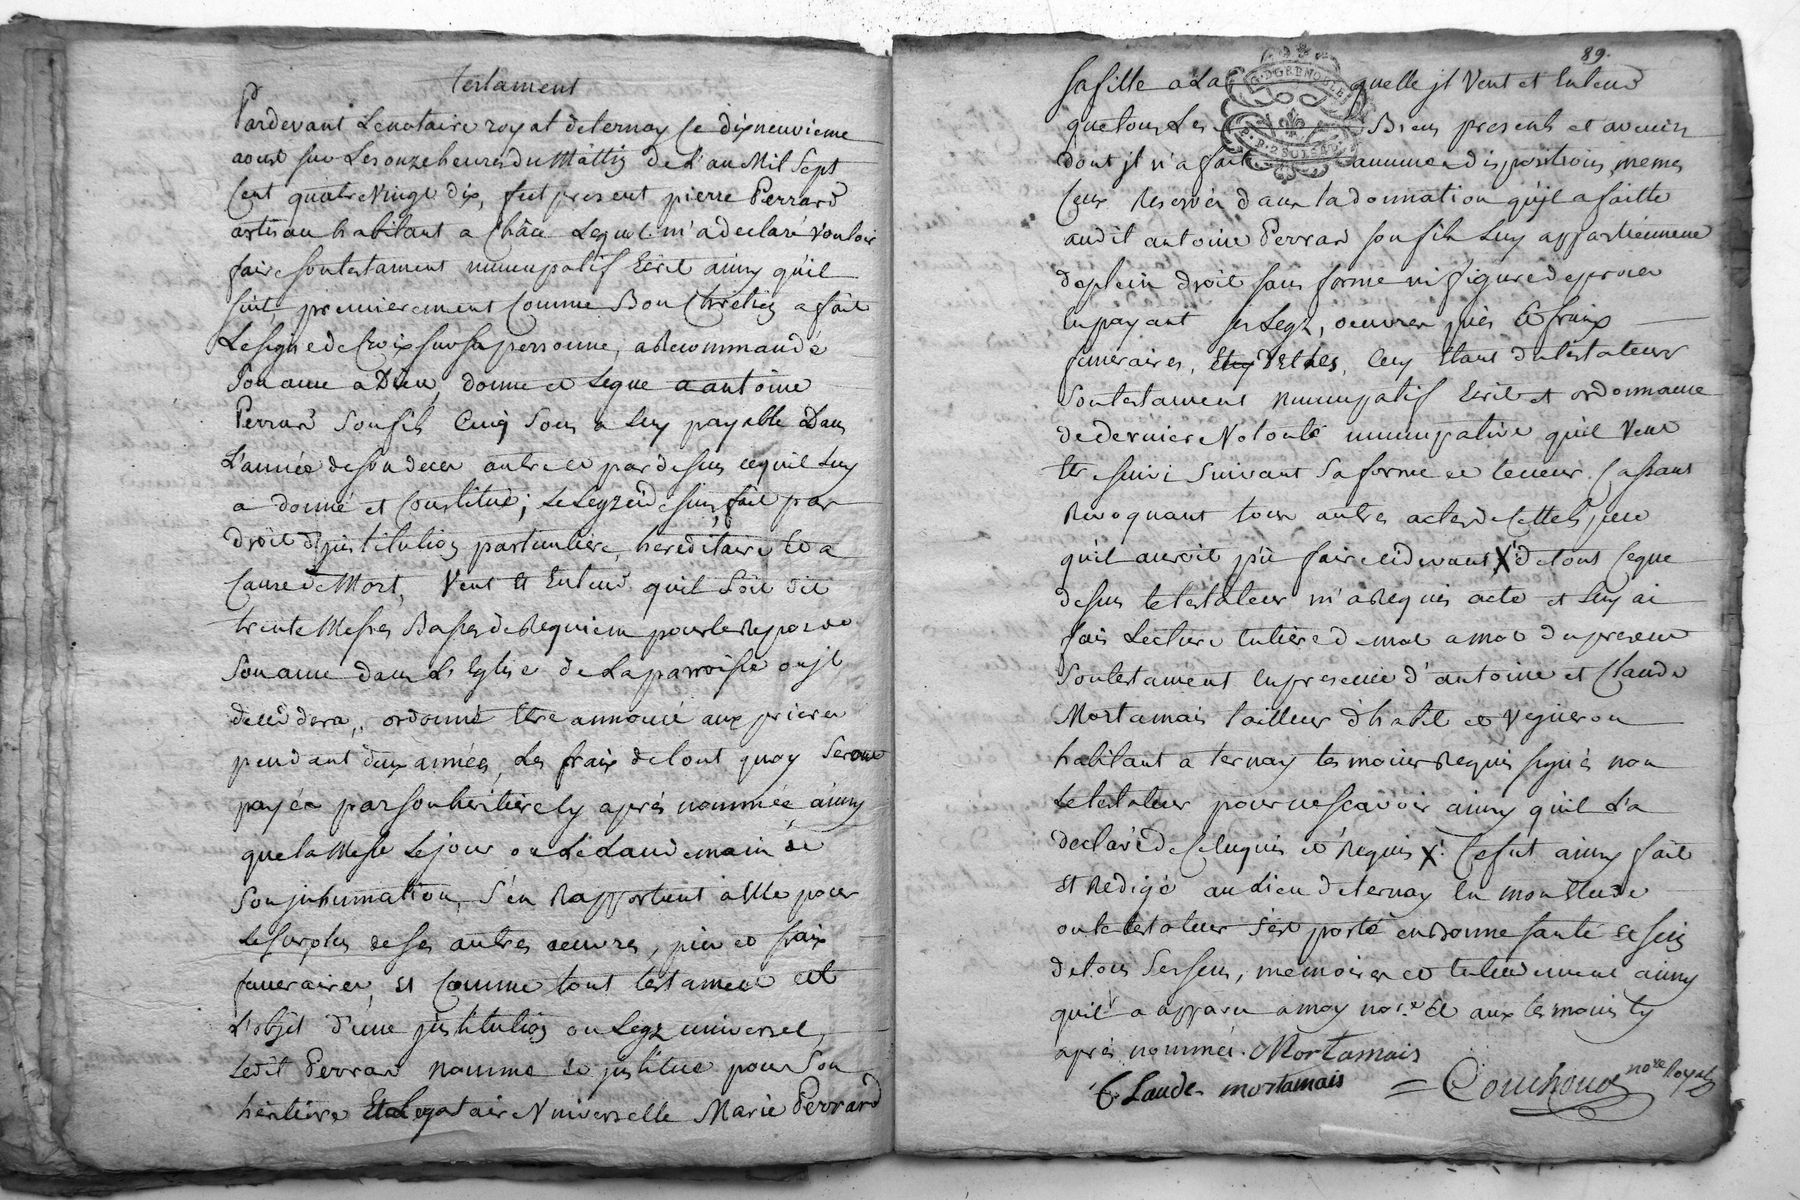 testament
Pardevant Le notaire royal de ternay Ce dix neuvieme
aoust sur Les onze heures du Mattin de L'an Mil Sept
Cent quatre Vingt dix, fut present pierre Perrard
artisan habitant a Lequel m'a declaré vouloir
faire son testament nuncupatif Ecrit ainsy qu'il
suit premierement Comme Bon Chretien a fait
Le signe de Croix sur sa personne, a Recommandé
Son ame a Dieu, donne et Legue a antoine
Perrard Son fils Cinq Sous a Luy payable Dans
L'année de son deces outre et par desus ce qu'il Luy
a donné et Constitué; Le Legz cÿ desus fait par
droit d'jnstitution particuliere, hereditaire et a
Cause de Mort, Veut Et Entend qu'il Soit dit
trente Messes Basses de Requiem pour le Repos de
Son ame dans L'Eglise de La parroisse ou jl
decedera, ordonne Etre annoncé aux prieres
pendant deux années, Les fraix de tout quoy Seront
payés par son heritiere cy après nommée, ainsy
que la Messe Le jour ou Le Landemain de
Son jnhumation, S'en Rapportant a Elle pour
Le surplus de ses autres oeuvres, pies et fraix
funeraires, Et Comme tout testament est
L'objet d'une jnstitution ou Legz universel,
Ledit Perrard nomme et jnstitue pour Son
heritiere Et Legataire Universelle Marie Perrard
89.
G. D GRENOBLE
D. P. 2 SOLS
sa fille a La quelle jl Veut et Entend
que tous Les Biens presents et avenir
dont jl n'a fait aucune disposition, memes
Ceux Reservés dans la donnation qu'jl a faitte
audit antoine Perrard son fils Luy appartiennent
de plein droit sans forme ni figure de procès
En payant ses Legz, oeuvres pies et fraix
funeraires, Et DEttes, Cecy Etant du testateur
Son testament nuncupatif Ecrit et ordonnance
de derniere Volonté nuncupative qu'il Veut
Etre suivi Suivant Sa forme et teneur. Cassant
Revoquant tous autres actes de cette espece
qu'il auroit pû faire cÿ devant X de tout Ceque
desus le testateur m'a Requis acte et Luy ai
fais Lecture entiere de mot a mot du present
Son testament En presence d'antoine et Claude
Mortamais tailleur d'habit et Vigneron
habitant a ternay temoins Requis signés non
Le testateur pour ne scavoir ainsy qu'il L'a
declaré de Ce Enquis et Requis X. Ce fut ainsy fait
Et Redigé au Lieu de ternay En mon Etude
ou le testateur s'est porté en Bonne santé et sein
de tous Ses sens, memoires et Entendement ainsy
qu'il a apparu a moy nore. Et aux temoins cy
après nommés. Mortamais
C Laude mortamais = Couchoud nore Royal